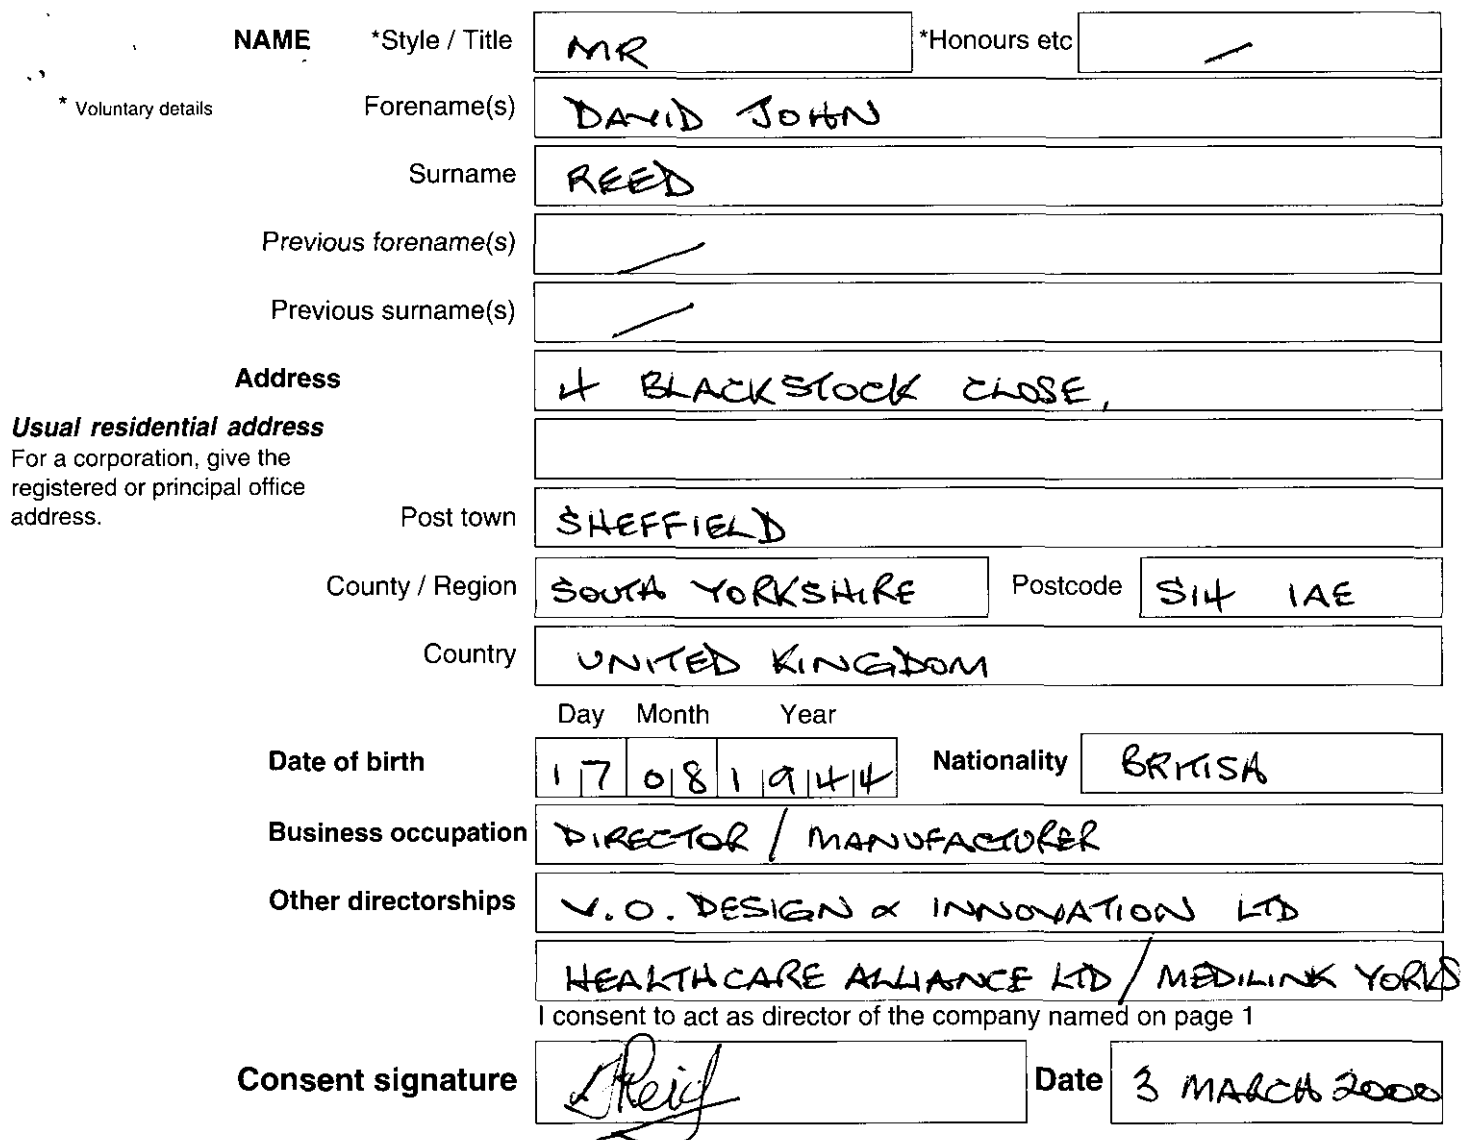 NAME *Style / Title MR *Honours etc /
* Voluntary details Forename(s) DAVID JOHN
Surname REED
Previous forename(s) /
Previous surname(s) /
Address 4 BLACKSTOCK CLOSE,
Usual residential address
For a corporation, give the
registered or principal office
address.
Post town SHEFFIELD
County / Region SOUTH YORKSHIRE Postcode S14 1AE
Country UNITED KINGDOM
Day Month Year
Date of birth 17 08 1944 Nationality BRITISH
Business occupation DIRECTOR / MANUFACTURER
Other directorships V.O. DESIGN & INNOVATION LTD
HEALTHCARE ALLIANCE LTD / MEDILINK YORKS
I consent to act as director of the company named on page 1
Consent signature Date 3 MARCH 2000